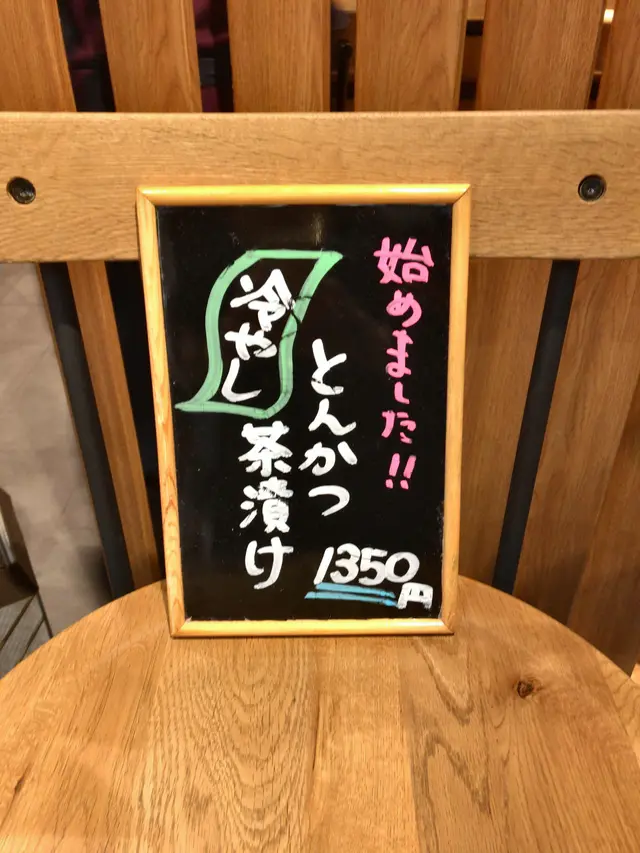 始めました!!
とんかつ
冷やし
茶漬け
1350円